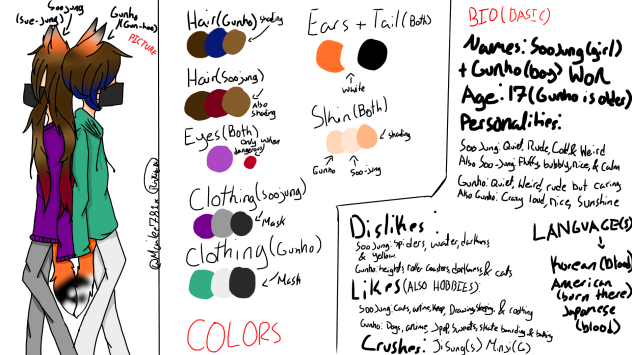 Soojung
(Sue-jung)
Gunho
(Gun-hoo)
PICTURE
Hair(Gunho)
shading
Hair(Soojung)
Also
shading
Eyes(Both)
Only when
dangerous)
Clothing(Soojung)
Mask
Clothing(Gunho)
Mask
COLORS
Ears + Tail(Both)
White
Skin(Both)
shading
Gunho
Soo-jung
BIO(BASIC)
Names: Soojung(girl)
+ Gunho(boy) Won
Age: 17(Gunho is older)
Personalities:
Soo Jung: Quiet, Rude, Cold & Weird
Also Soo-Jung: Fluffy, bubbly, nice, & Calm
Gunho: Quiet, Weird, rude but caring
Also Gunho: Crazy, loud, nice, Sunshine
Dislikes:
Soo Jung: Spiders, water, darkness
& Yellow
Gunho: heights, roller coasters, darkness & cats
Likes(ALSO HOBBIES):
Soo Jung: Cats, anime, Kpop, Drawing, & cooking
Gunho: Dogs, anime, Jpop, Sweets, skate boarding & baking
Crushes: Jisung(s) Minji(G)
LANGUAGE(S)
Korean(blood)
American
(born there)
Japanese
(blood)